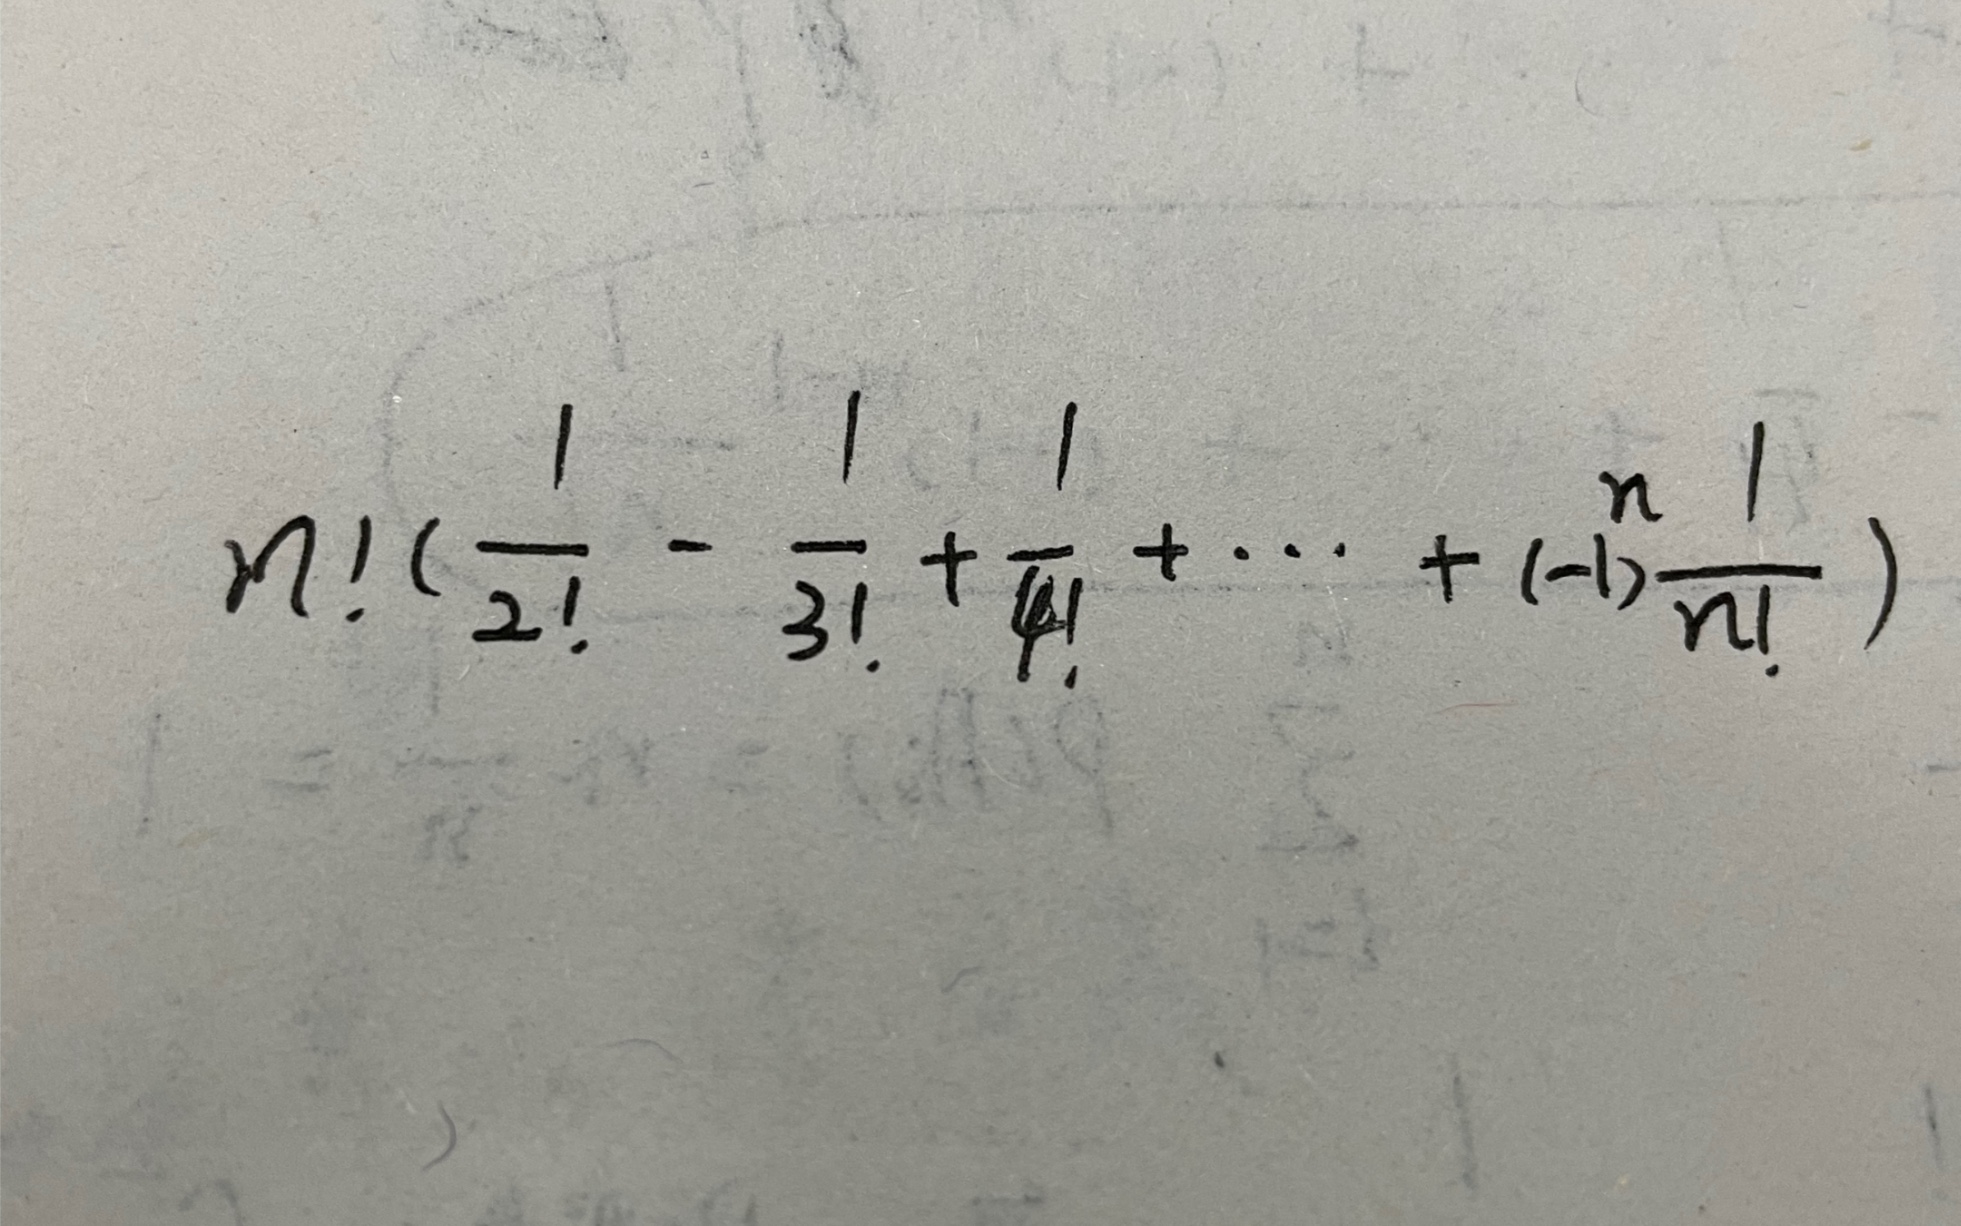 n! ( 1/2! - 1/3! + 1/4! + ··· + (-1)^n 1/n! )